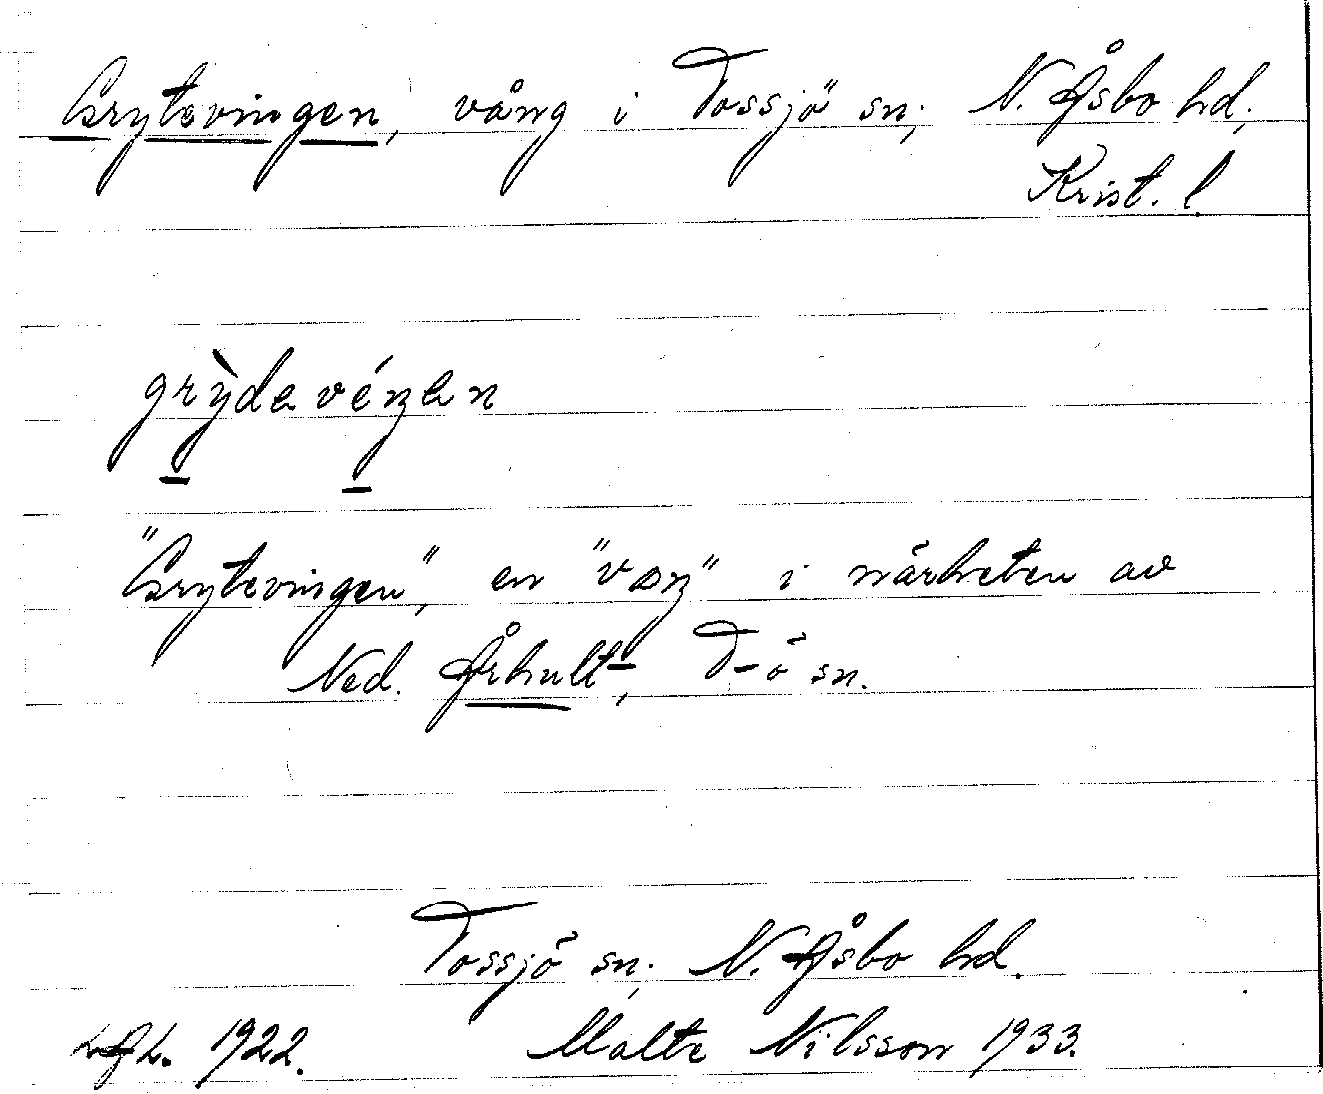 Grytevingen, vång i Tossjö sn; N. Åsbo hd;
Krist. l.
grỳdavéŋan
"Grytevingen", en "vaŋ" i närheten av
Ned. Århult, T-ö sn.
Tossjö sn; N. Åsbo hd.
1922. Malte Nilsson 1933.